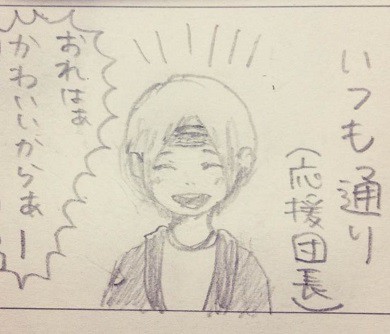 いつも通り
(応援団長)
おれはぁ
かわいいからぁー